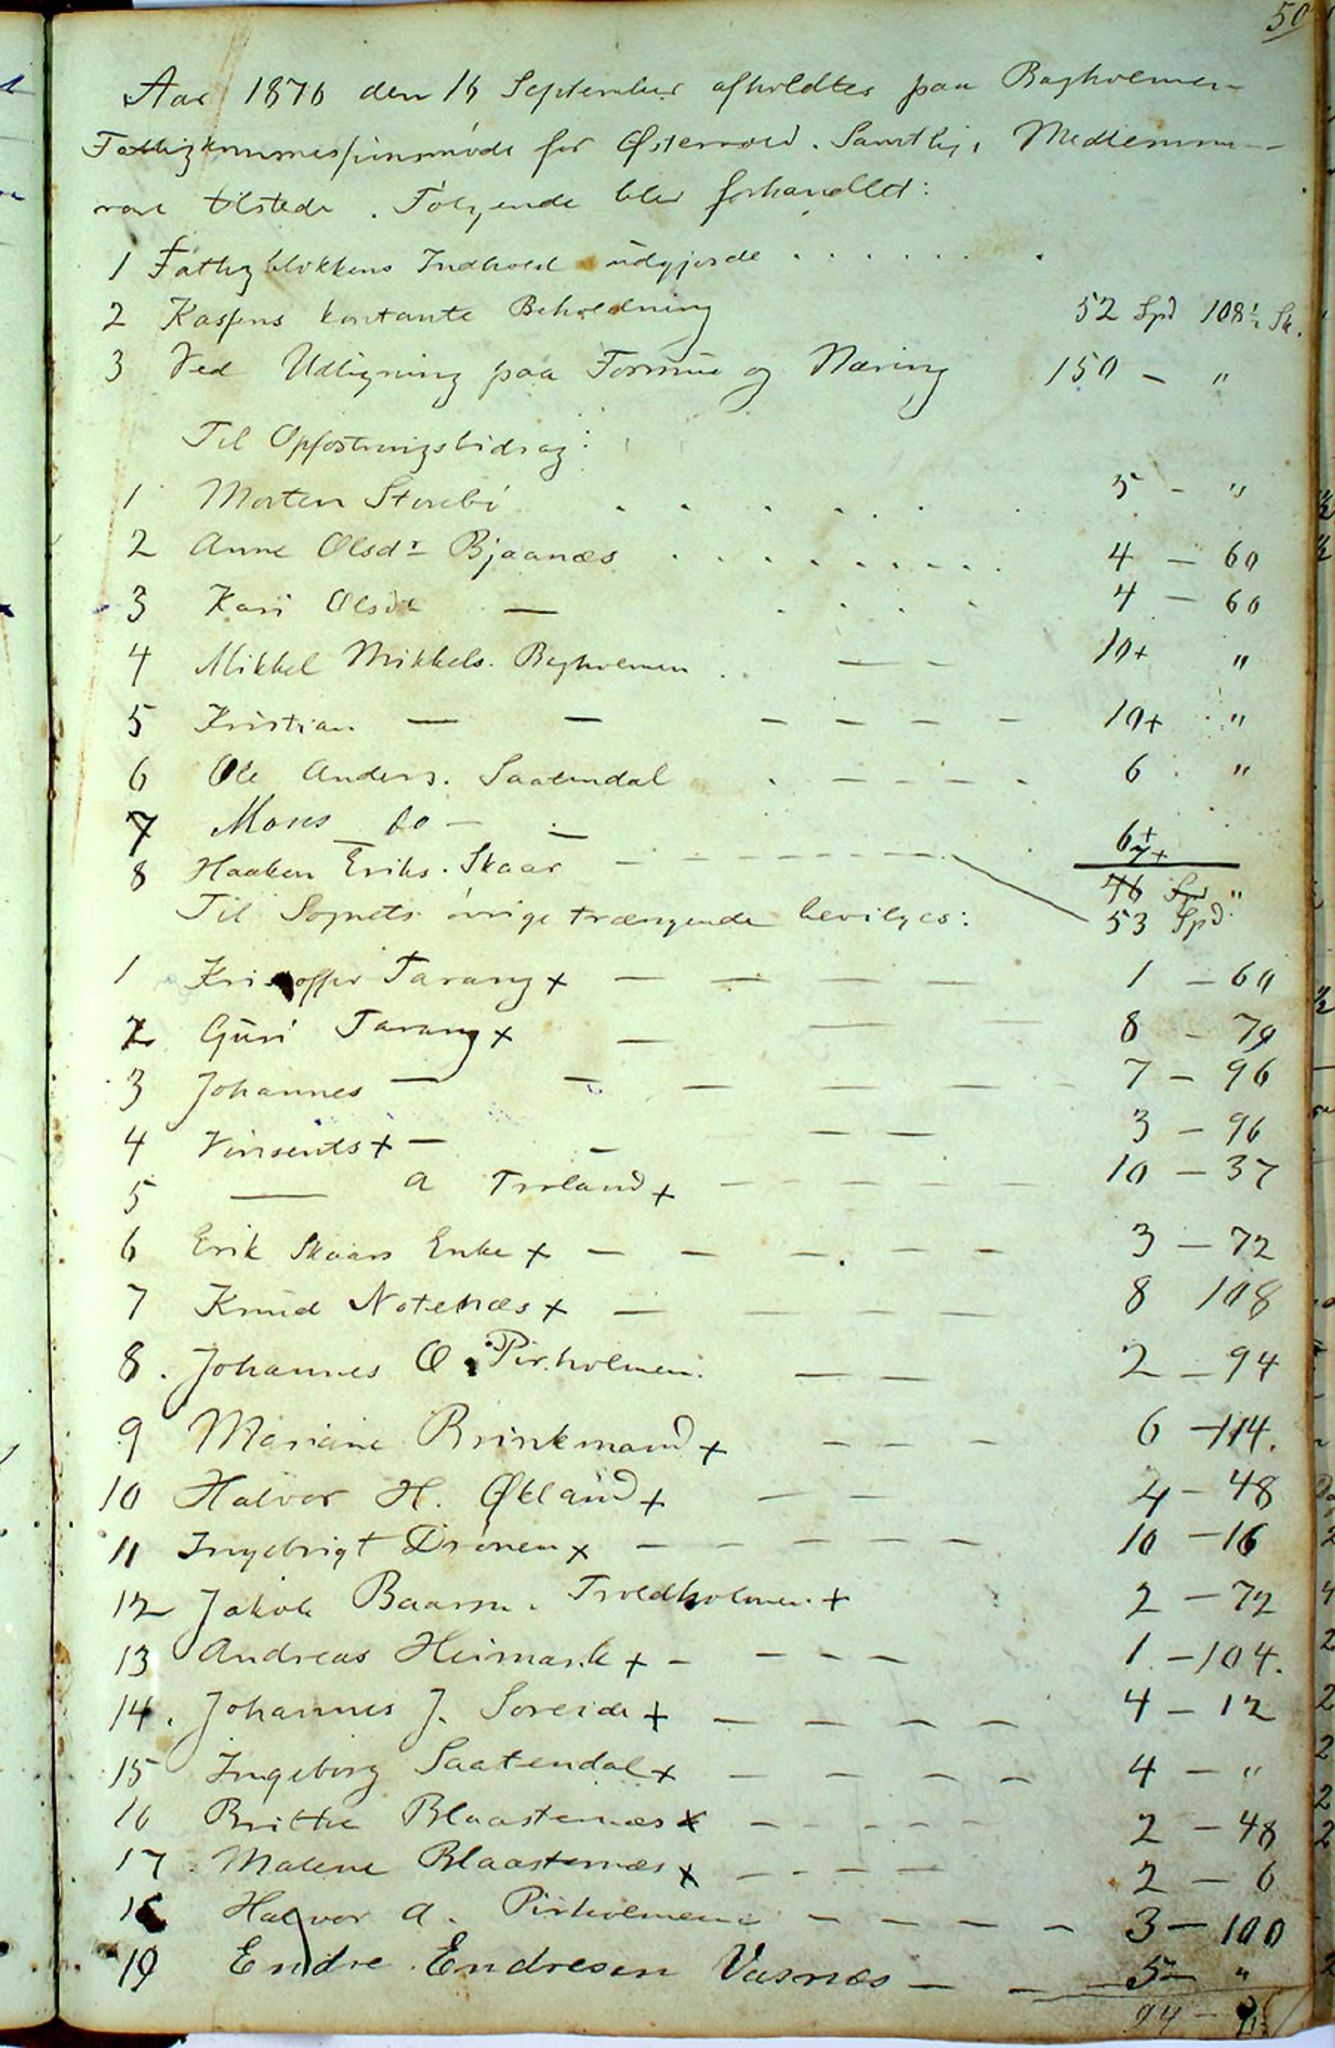 50
Aar 1876 den 16 September afholdtes paa Bagholmen
Fattigkommissionsmøde for Østervold. Samtlige Medlemmer
vare tilstede. Følgende blev forhandlet:
1 Fattigblokkens Indhold udgjorde . . . . . . .
2 Kassens kontante Beholdning 52 Spd 108½ Sk.
3 Ved Udligning paa Formue og Næring 150 — "
Til Opfostringsbidrag:
1 Morten Storebø . . . . . . 5 — "
2 Anne Olsdr Bjaanæs . . . . . . . . . 4 — 60
3 Kari Olsdr — . . . . 4 — 60
4 Mikkel Mikkels. Bagholmen . . — — 10+ "
5 Kristian — — — — — — 10+ "
6 Ole Anders. Saatendal . — — — . 6 "
7 Moses do — — 6+
8 Haaken Eriks. Skaar — — — — — 7+
46 Spd "
Til Sognets øvrige trængende bevilges: 53 Spd
1 Kristoffer Tarang + — — — — 1 — 60
2 Guri Tarang + — — — 8 — 79
3 Johannes — — — — — — 7 — 96
4 Vinsents + — — — — 3 — 96
5 — a Troland + — — — — — 10 — 37
6 Erik Skaars Enke + — — — — — 3 — 72
7 Knud Notenæs + — — — — 8 108
8. Johannes O. Pirholmen. — — 2 — 94
9 Mariane Brinkmand + — — — 6 — 114.
10 Halvor H. Økland + — — 4 — 48
11 Ingebrigt Drønen x — — — — — 10 — 16
12 Jakob Baarsn. Troldholmen + 2 — 72
13 Andreas Heimark + — — — — 1. — 104.
14. Johannes J. Søreide + — — — — 4 — 12
15 Ingeborg Saatendal + — — — — 4 — "
16 Brithe Blaasternæs x — — — — — 2 — 48
17. Malene Blaasternæs x — — — — 2 — 6
18 Halvor A. Pirholmen — — — — 3 — 100
19 Endre Endresen Vasnæs — — 5 — "
94 —